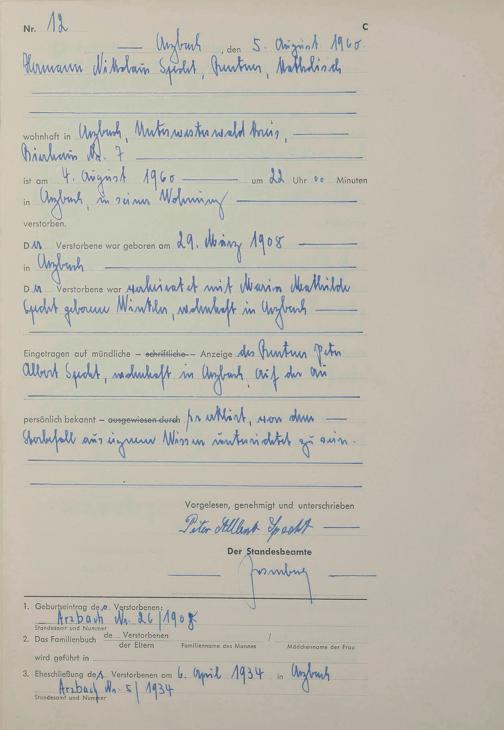 Nr. 12 C
Arzbach, den 5. August 1960
Hermann Nikolaus Specht, Rentner, Katholisch
wohnhaft in Arzbach, Unterwesterwaldkreis,
Nr. 7
ist am 4. August 1960 um 22 Uhr 00 Minuten
in Arzbach, in seiner Wohnung
verstorben.
Der Verstorbene war geboren am 29. März 1908
in Arzbach
Der Verstorbene war verheiratet mit Maria Mathilde
Specht geborene Winkler, wohnhaft in Arzbach
Eingetragen auf mündliche – schriftliche – Anzeige des Rentner Peter
Albert Specht, wohnhaft in Arzbach, Auf der Au
persönlich bekannt – ausgewiesen durch er erklärt, von dem
Sterbefall aus eigenem Wissen unterrichtet zu sein.
Vorgelesen, genehmigt und unterschrieben
Peter Albert Specht
Der Standesbeamte
1. Geburtseintrag des Verstorbenen:
Arzbach Nr. 26/1908
Standesamt und Nummer
2. Das Familienbuch de Verstorbenen /
der Eltern Familienname des Mannes Mädchenname der Frau
wird geführt in
3. Eheschließung des Verstorbenen am 6. April 1934 in Arzbach
Arzbach Nr. 5/1934
Standesamt und Nummer